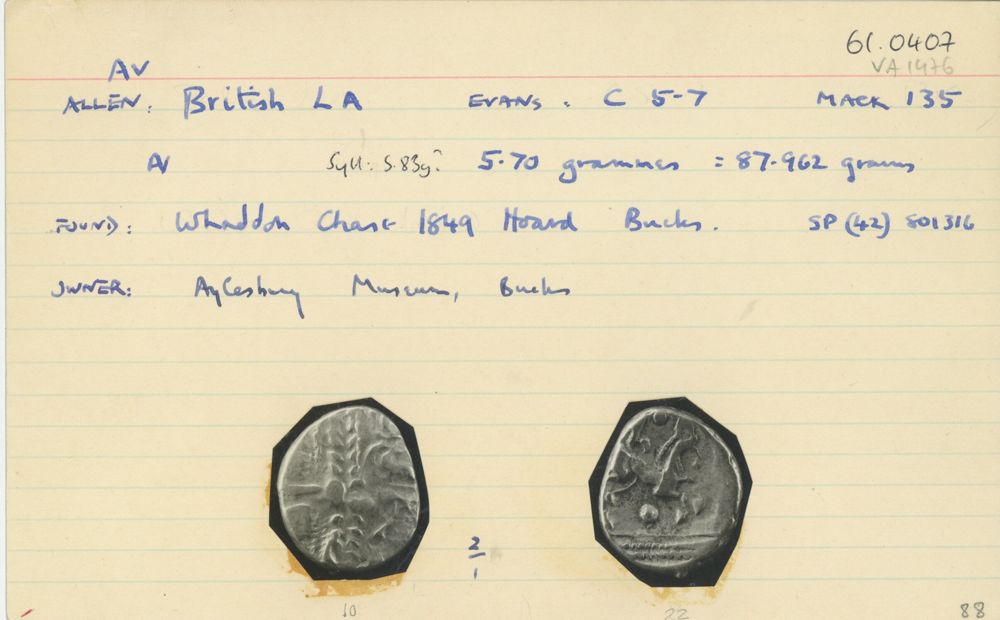 61.0407
VA 1476
AV
ALLEN: British LA EVANS: C 5-7 MACK 135
AV Syll: 5.83g? 5.70 grammes = 87.962 grains
FOUND: Whaddon Chase 1849 Hoard Bucks. SP (42) 801316
OWNER: Aylesbury Museum, Bucks
2
1
10 22 88